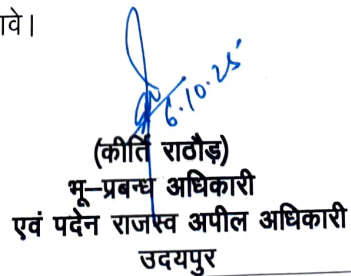 ावे।
6.10.25
(कीर्ति राठौड़)
भू–प्रबन्ध अधिकारी
एवं पदेन राजस्व अपील अधिकारी
उदयपुर